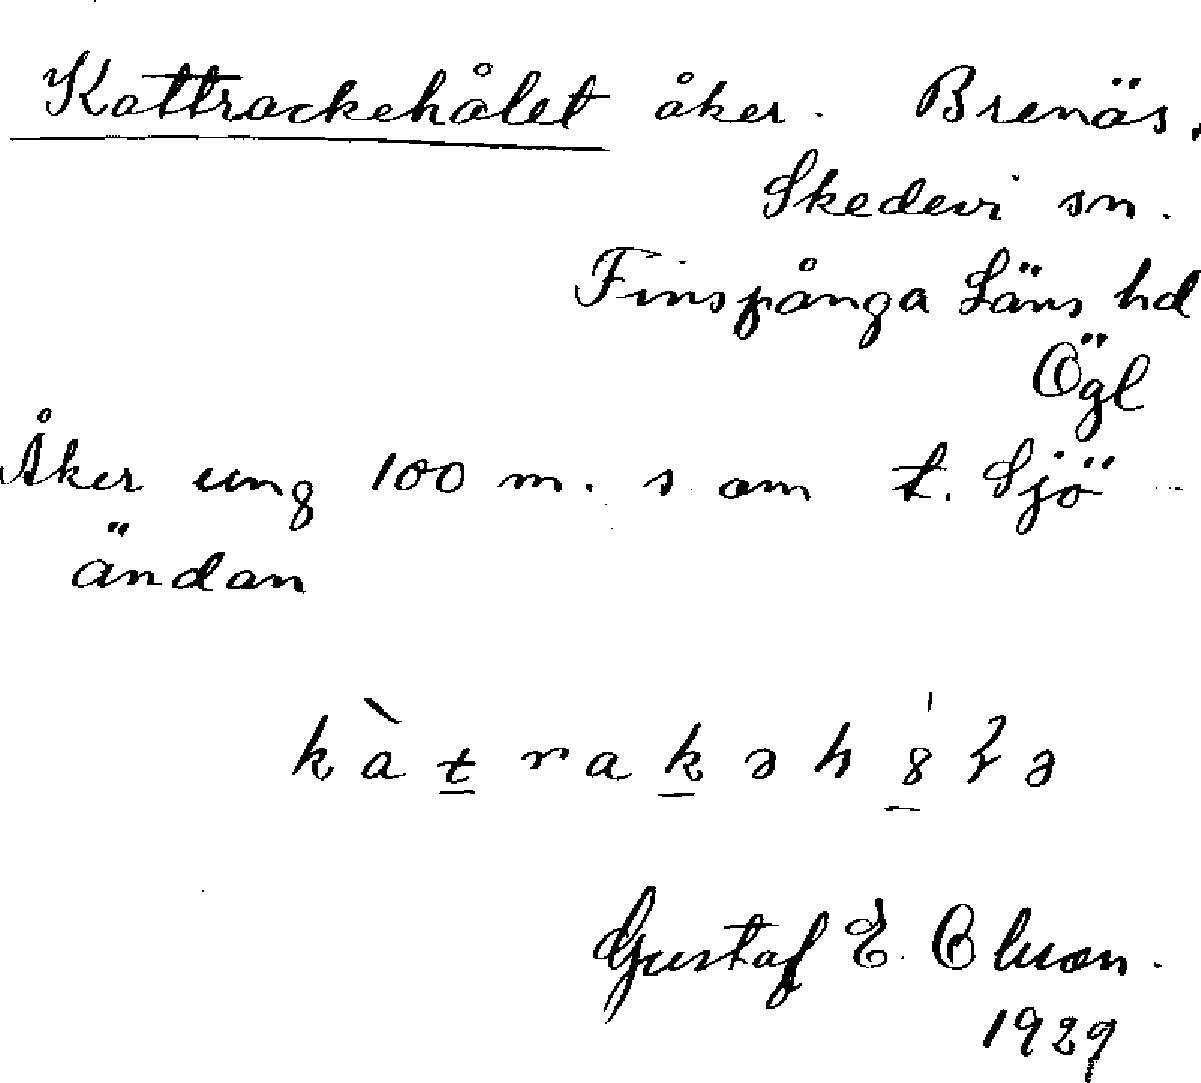 Kattrackehålet åker. Brenäs,
Skedevi sn.
Finspånga Läns hd
Ögl
Åker ung 100 m. s om t. Sjö
ändan
Gustaf E. Olsson.
1929